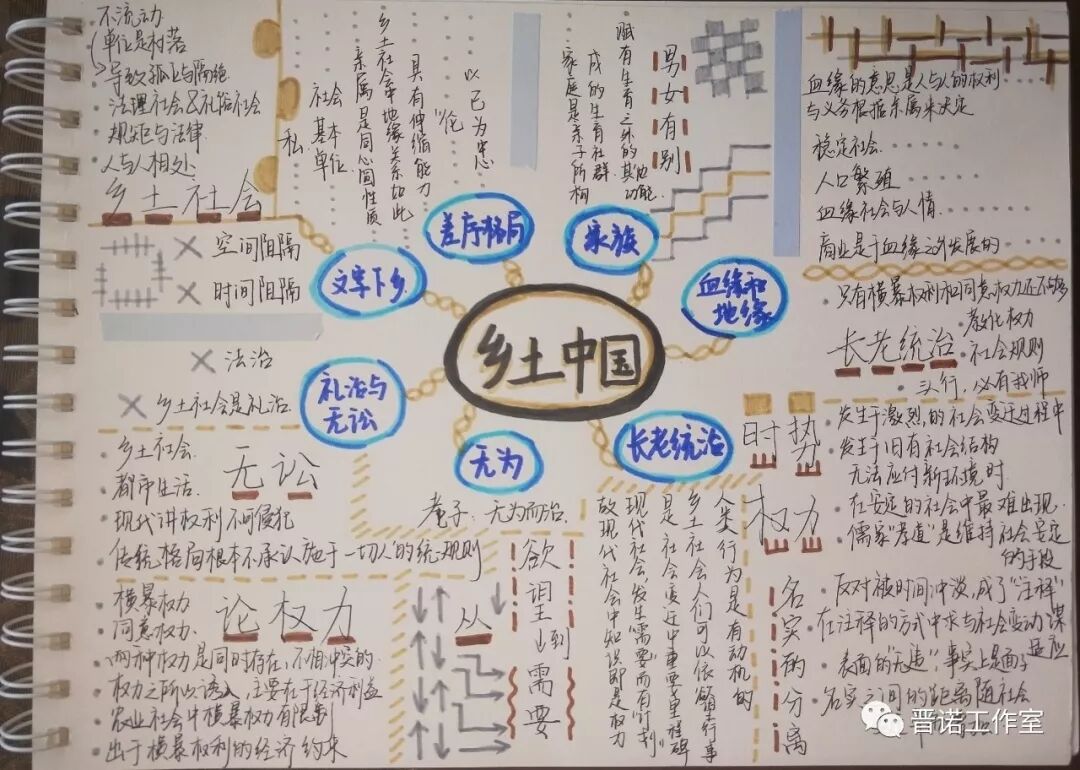 不流动
单位是村落
导致孤立与隔绝
法理社会&礼俗社会
规矩与法律
人与人相处
乡土社会
以己为中心
"伦"
具有伸缩能力
乡土社会中地缘关系如此
亲属是同心圆性质
社会基本单位
私
男女有别
赋有生育之外的其他功能
氏族的生育社群
家庭是亲子所构
血缘的意思是人与人的权利
与义务根据亲属来决定
稳定社会
人口繁殖
血缘社会与人情
商业是于血缘之外发展的
空间阻隔
时间阻隔
法治
乡土社会是礼治
文字下乡
差序格局
家族
血缘和地缘
乡土中国
礼治与无讼
无为
长老统治
只有横暴权利和同意权力还不够
教化权力
长老统治
社会规则
三人行,必有我师
乡土社会
无讼
都市生活
现代讲权利不可侵犯
传统格局根本不承认施于一切人的统一规则
老子:无为而治
时势权力
发生于激烈的社会变迁过程中
发生于旧有社会结构
无法应付新环境时
在安定的社会中最难出现
儒家"孝道"是维持社会安定
的手段
横暴权力
论权力
同意权力
两种权力是同时存在,不相冲突的
权力之所以诱人,主要在于经济利益
农业社会中横暴权力有限制
出于横暴权利的经济约束
从欲望到需要
人类行为是有动机的
乡土社会人们可以依欲望去行事
是社会变迁中重要里程碑
现代社会,发生"需要"而有"计划"
故现代社会中知识即是权力
名实的分离
反对被时间冲淡,成了"注释"
在注释的方式中求与社会变动谋
适应
表面的"无违",事实上是面子
名实之间的距离随社会
晋诺工作室